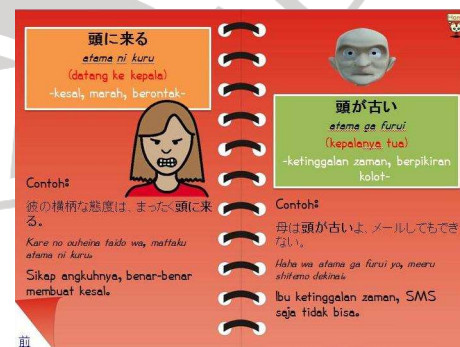 頭に来る
atama ni kuru
(datang ke kepala)
-kesal, marah, berontak-
Contoh:
彼の横柄な態度は、まったく頭に来
る。
Kare no ouheina taido wa, mattaku
atama ni kuru.
Sikap angkuhnya, benar-benar
membuat kesal.
前
頭が古い
atama ga furui
(kepalanya tua)
-ketinggalan zaman, berpikiran
kolot-
Contoh:
母は頭が古いよ、メールしてもでき
ない。
Haha wa atama ga furui yo, meeru
shitemo dekinai.
Ibu ketinggalan zaman, SMS
saja tidak bisa.